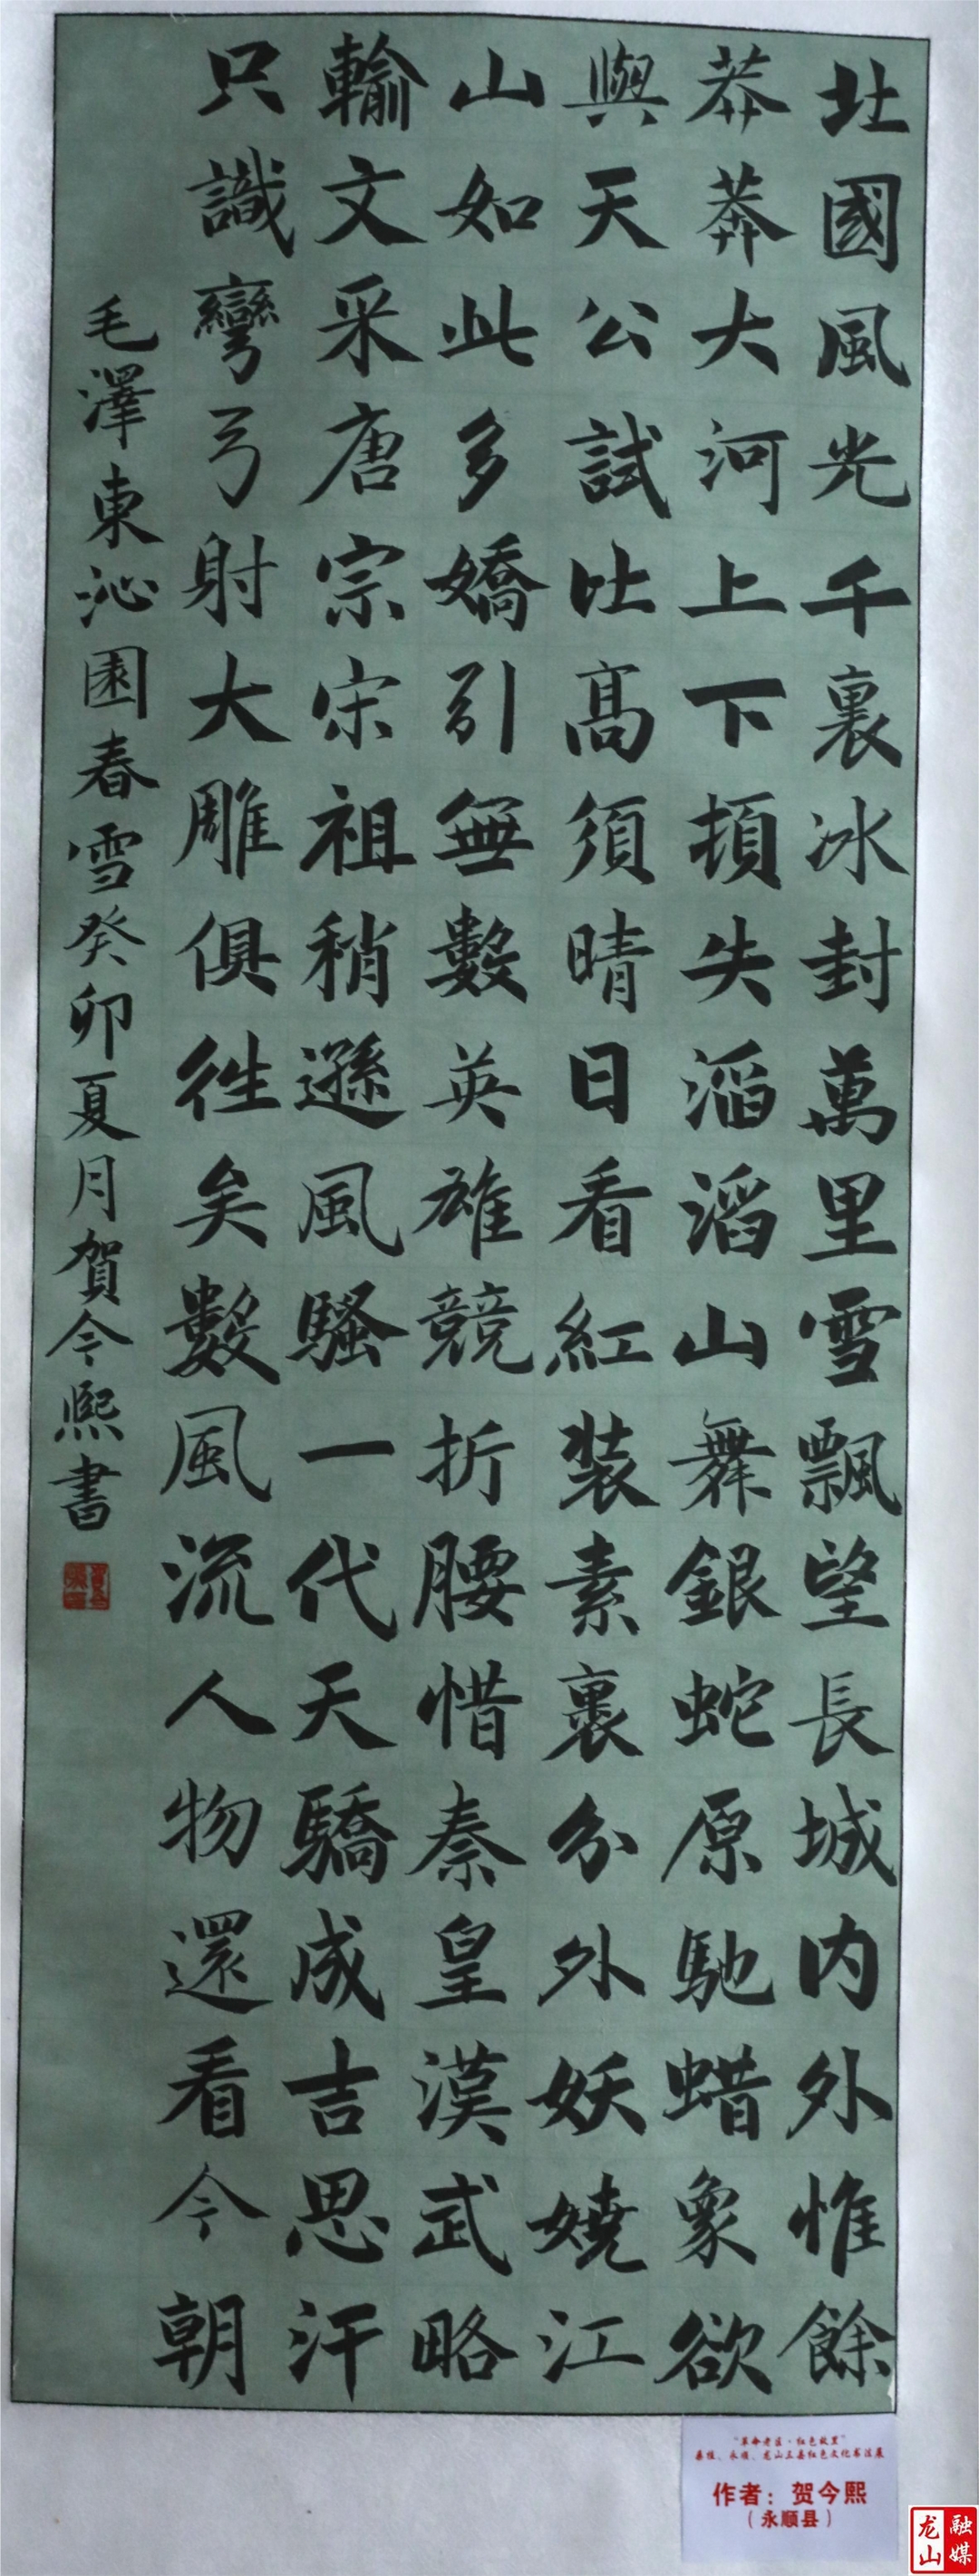 北國風光千裏冰封萬里雪飄望長城内外惟餘
莽莽大河上下頓失滔滔山舞銀蛇原馳蜡象欲
與天公試比高須晴日看紅装素裹分外妖嬈江
山如此多嬌引無數英雄競折腰惜秦皇漢武略
輸文采唐宗宋祖稍遜風騷一代天驕成吉思汗
只識彎弓射大雕俱往矣數風流人物還看今朝
毛澤東沁園春雪癸卯夏月賀今熙書
“革命老区·红色故里”
桑植、永顺、龙山三县红色文化书法展
作者：贺今熙
（永顺县）
龙山融媒